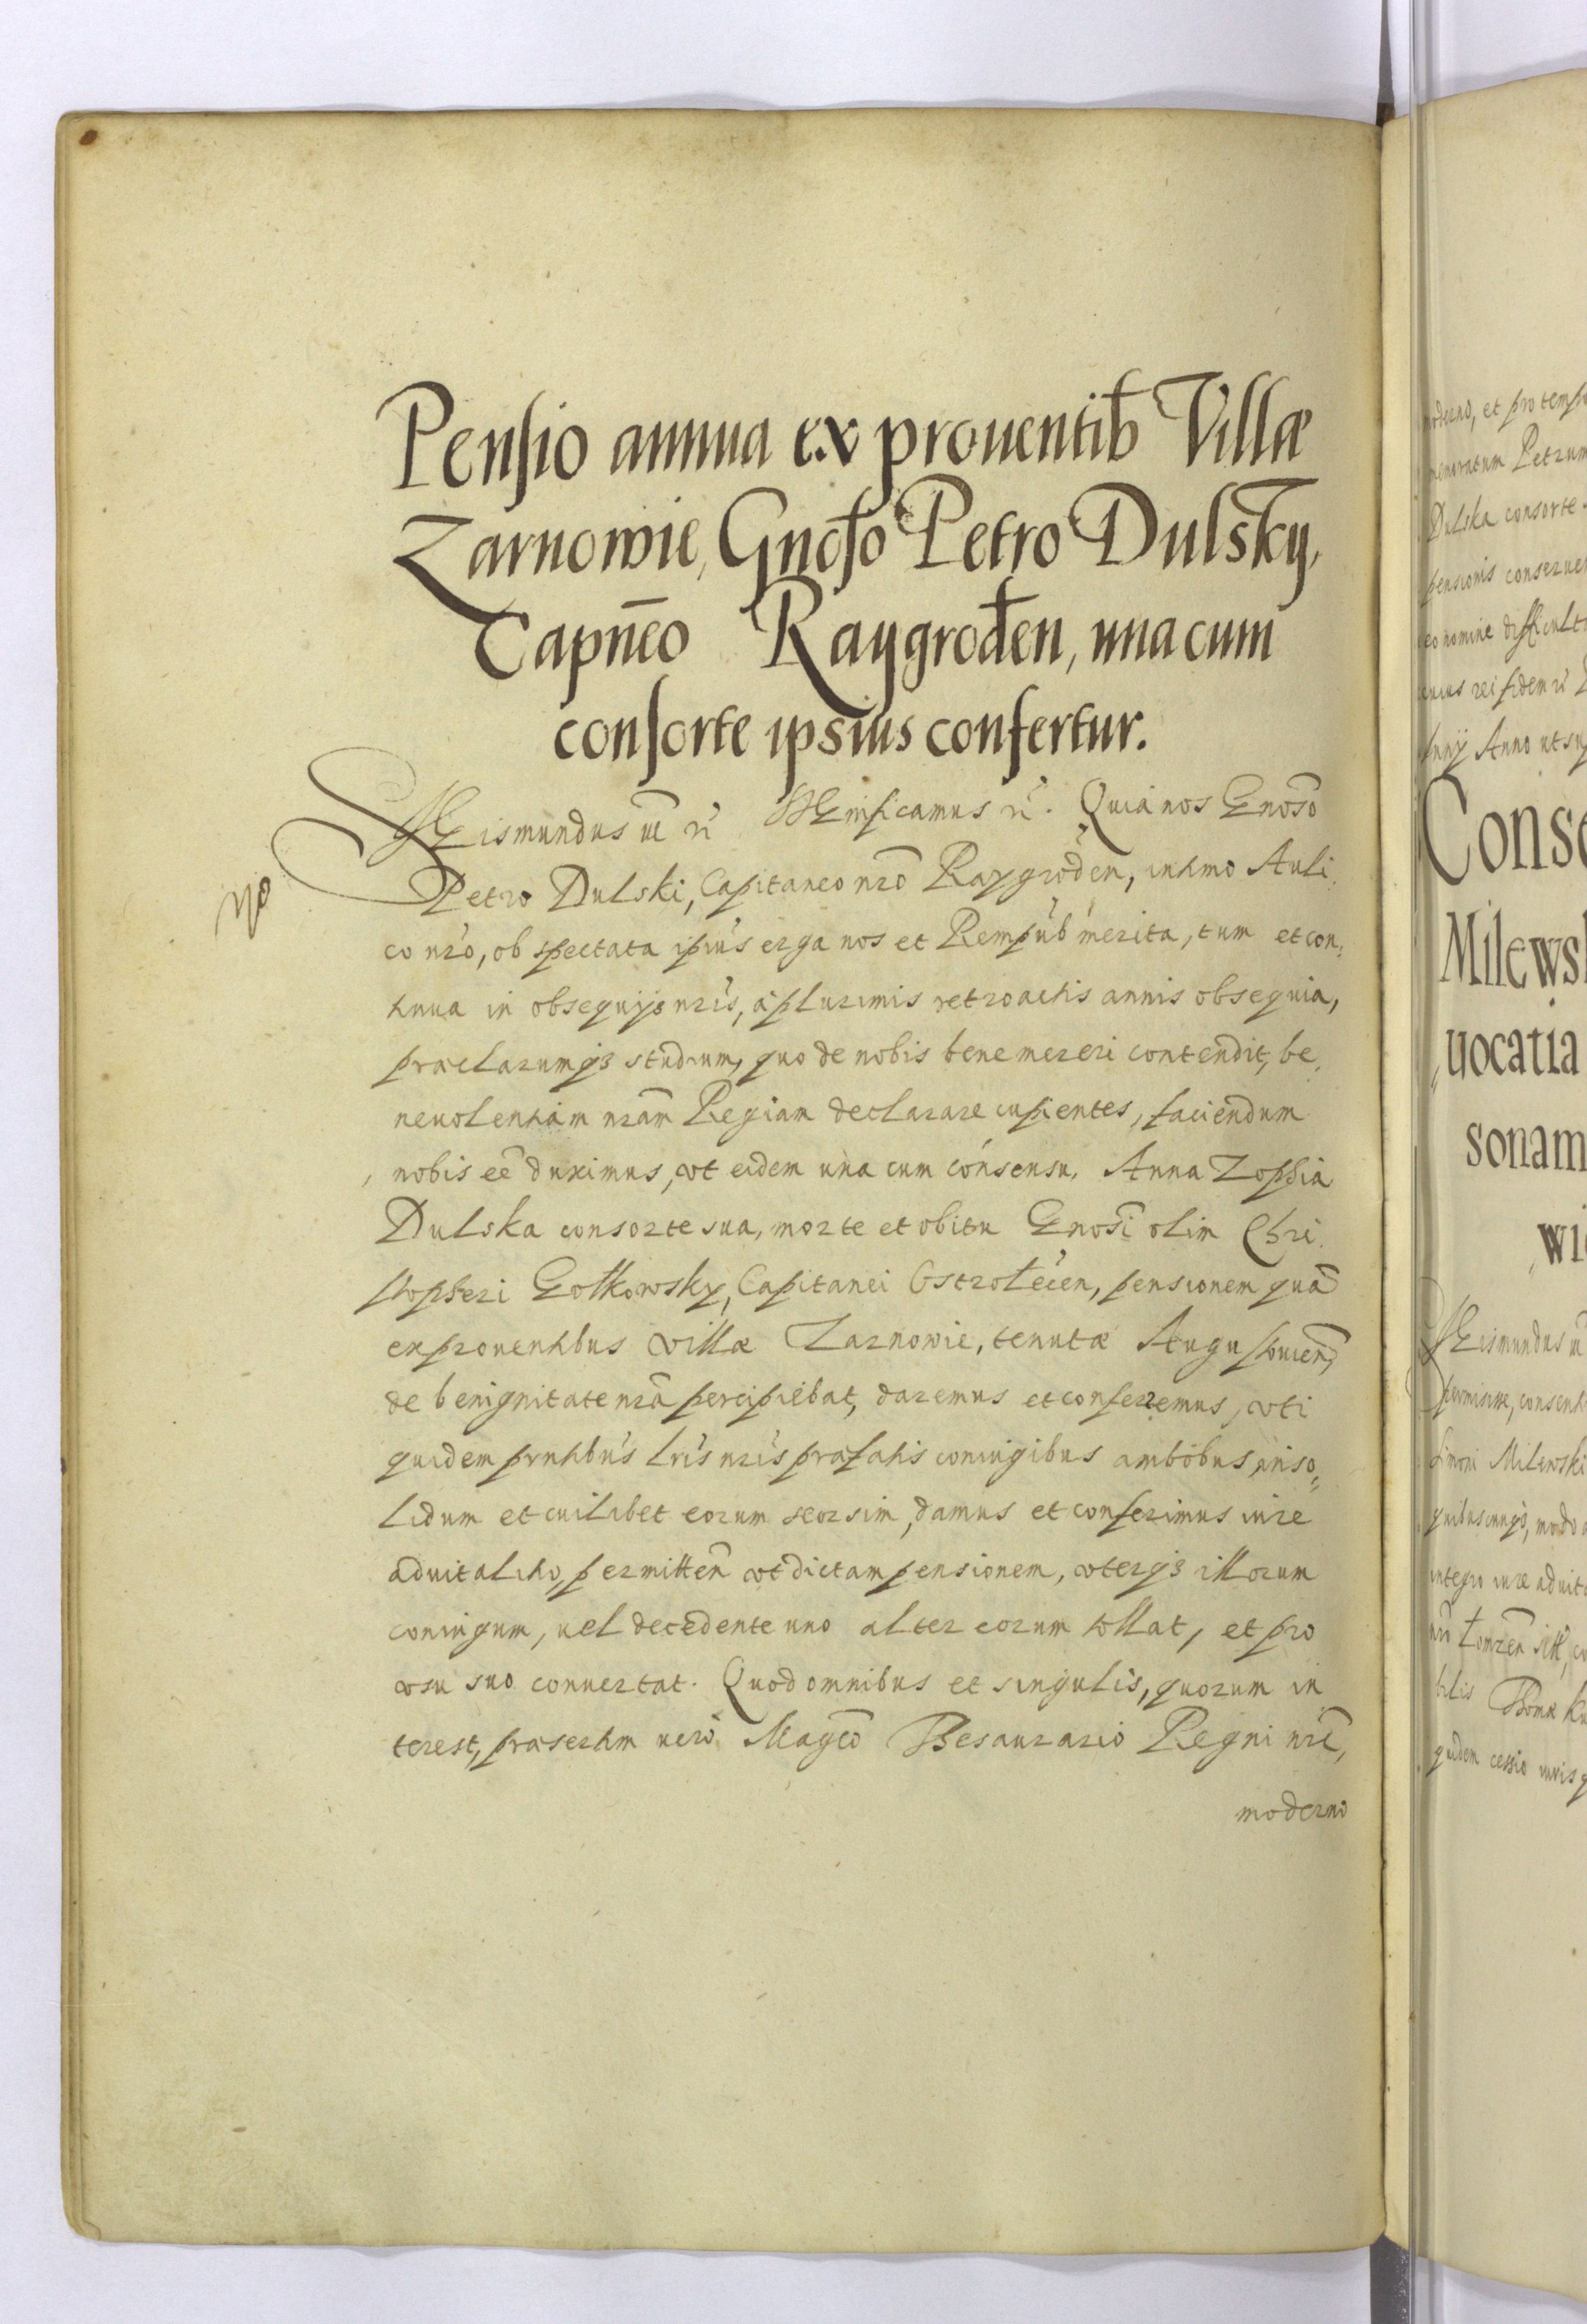 Pensio annua ex prouentib Villæ
Zarnowie, Gnoso Petro Dulsky,
Capneo Raygroden, una cum
consorte ipsius confertur.
Sigismundus Significamus Quia nos Gnoso
Petro Dulski, Capitaneo nro Raygroden, intimo Auli
co nro, ob spectata ipius erga nos et Rempub merita, tum et con
tinua in obsequijs nris, a plurimis retroactis annis obsequia,
præclarumqз studium, quo de nobis bene mereri contendit, be
neuolentiam nram Regiam declarare cupientes, faciendum
nobis eē duximus, vt eidem una cum consensu, Anna Zophia
Dulska consorte sua, morte et obitu Gnosi olim Chri
stopheri Gotkowsky, Capitanei Ostrolecen, pensionem quā
ex prouentibus villæ Zarnowie, tenutæ Augustouien,
de benignitate nrā percipiebat, daremus et conferremus, vti
quidem pntibus lris nris præfatis coniugibus ambobus in so
lidum et cuilibet eorum seorsim, damus et conferimus iure
aduitalitio, permitten vt dictam pensionem, vterqз illorum
coniugum, uel decedente uno alter eorum tollat, et pro
vsu suo conuertat. Quod omnibus et singulis, quorum in
terest, præsertim uero Magco Thesaurario Regni nri,
moderno
moderno, et pro temp
Petrum
Dulska consorte
pensionis conserue
eo nomine difficult
cuius rei fidem
Junij Anno ut su
Cons
Milews
uocatia
sonam
wi
Sigismundus
permisisse, consenti
Milewski
quibuscunqз, modo a
integro iure aduit
Lomzen
bilis Thomæ
quidem cessio iuris q